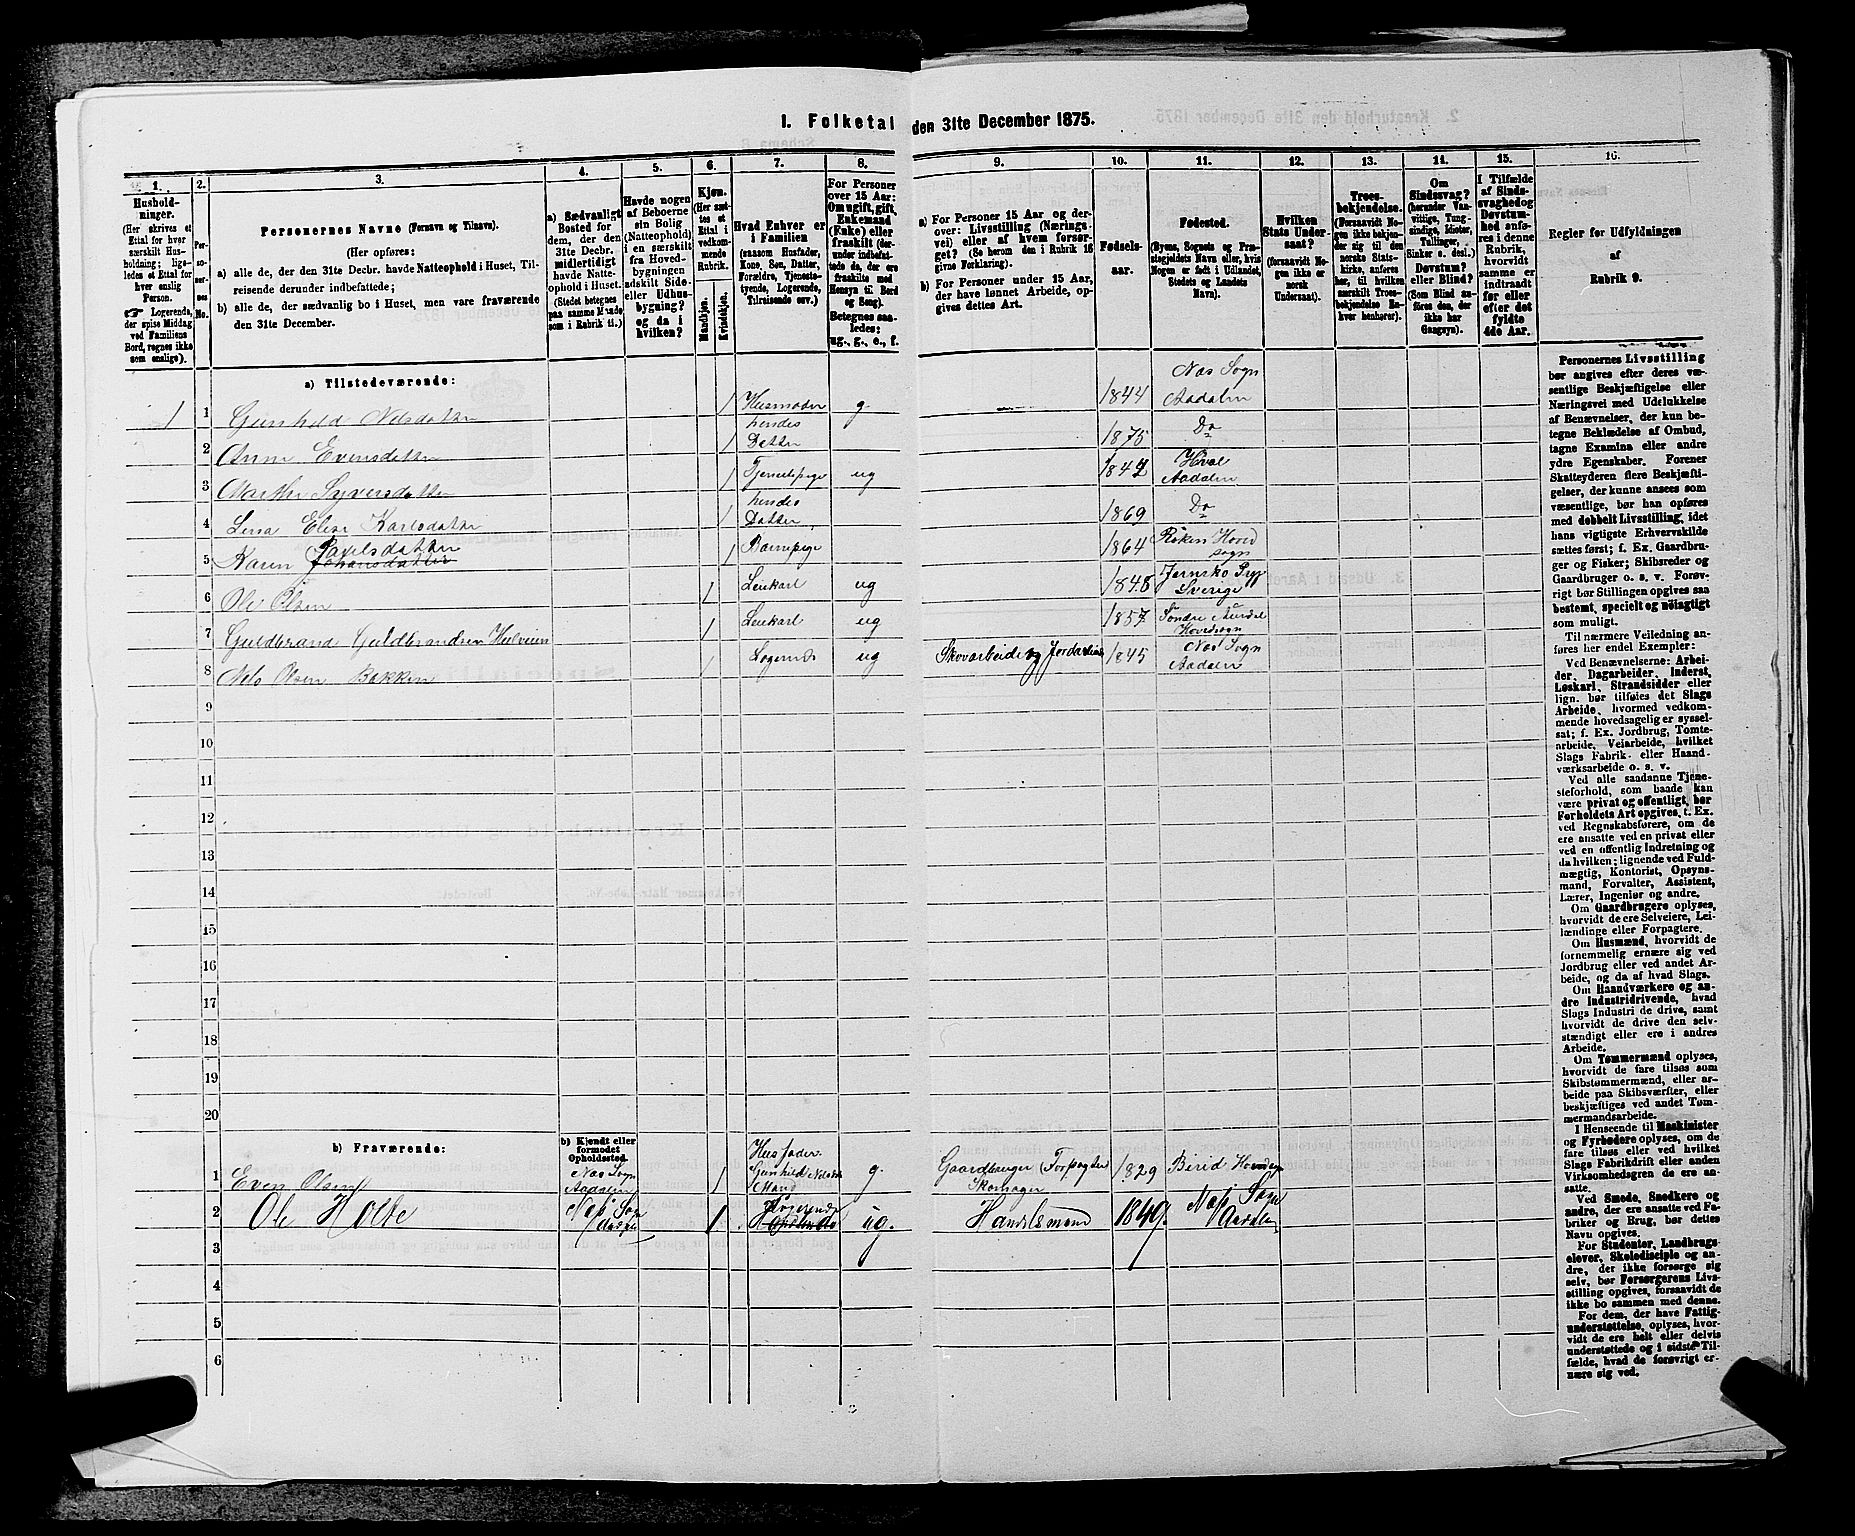 1. Folketal den 31te December 1875.
1.
Hushold-
ninger.
(Her skrives et
Ettal for hver
særskilt Hus-
holdning; lige-
ledes et Ettal for
hver enslig
Person.
☞ Logerende,
der spise Middag
ved Familiens
Bord, regnes ikke
som enslige).
2.
Per-
so-
ner-
nes
No.
3.
Personernes Navne (Fornavn og Tilnavn).
(Her opføres:
a) alle de, der den 31te Decbr. havde Natteophold i Huset, Til-
reisende derunder indbefattede;
b) alle de, der sædvanlig bo i Huset, men vare fraværende
den 31te December.
4.
a) Sædvanligt
Bosted for
dem, der den
31te Decbr.
midlertidigt
havde Natte-
ophold i Huset.
(Stedet betegnes
paa samme Maade
som i Rubrik 11.)
5.
Havde nogen
af Beboerne
sin Bolig
(Natteophold)
i en særskilt
fra Hoved-
bygningen
adskilt Side-
eller Udhus-
bygning?
og da i
hvilken?
6.
Kjøn.
(Her sæt-
tes et
Ettal i
vedkom-
mende
Rubrik.
Mandkjøn.
Kvindekjøn.
7.
Hvad Enhver er
i Familien
(saasom Husfader,
Kone, Søn, Datter,
Forældre, Tjeneste-
tyende, Logerende,
Tilreisende osv.)
8.
For Personer
over 15 Aar:
Om ugift, gift,
Enkemand
(Enke) eller
fraskilt (der-
under indbefat-
tede da, der ere
fraskilte med
Hensyn til Bord
og Seng).
Betegnes saa-
ledes:
ug., g., e., f.
9.
a) For Personer 15 Aar og der-
over: Livsstilling (Nærings-
vei) eller af hvem forsør-
get? (Se herom den i Rubrik 16
givne Forklaring).
b) For Personer under 15 Aar,
der have lønnet Arbeide, op-
gives dettes Art.
10.
Fødsels-
aar.
11.
Fødested.
(Byens, Sognets og Præ-
stegjeldets Navn eller, hvis
Nogen er født i Udlandet,
Stedets og Landets
Navn).
12.
Hvilken
Stats Under-
saat?
(forsaavidt No-
gen ikke er
norsk
Undersaat).
13.
Troes-
bekjendelse.
(Forsaavidt No-
gen ikke bekjen-
der sig til den
norske Stats-
kirke, anføres
her, til hvilken
særskilt Troes-
bekjendelse En-
hver henhører).
14.
Om
Sindssvag?
(herunder Van-
vittige, Tung-
sindige, Idioter,
Tullinger,
Sinker o. desl.).
Døvstum?
eller Blind?
(Som Blind an-
føres den, der
ikke har
Gangsyn).
15.
I Tilfælde
af Sinds-
svaghed og
Døvstum-
hed anfø-
res i denne
Rubrik,
hvorvidt
samme er
indtraadt
før eller
efter det
fyldte
4de Aar.
16.
Regler for Udfyldningen
af
Rubrik 9.
a) Tilstedeværende:
1 1 Gunhild Nilsdatter 1 Husmoder g 1844 Nas Sogn Aadalen
2 Anne Evensdatter 1 hendes Datter 1875 Do
3 Marthe Syversdatter 1 Tjenestpige ug 1842 Hval Aadalen
4 Lina Elise Karlsdatter 1 hendes Datter 1869 Do
5 Karen Paulsdatter Johansdatter 1 Barnepige 1864 Røken Hoved sogn
6 Ole Olsen 1 Leiekarl ug 1848 Jernsko Sverige
7 Guldbrand Guldbrandsen Hulveien 1 Leiekarl ug 1857 Søndre Aurdal Hovedsogn
8 Nils Olsen Bakken 1 Logerende ug Skovarbeide og Jordarbeide 1845 Nas Sogn Aadalen
9
10
11
12
13
14
15
16
17
18
19
20
b) Fraværende:
b) Kjendt eller
formodet
Opholdssted.
1 Even Olsen Nas Sogn Aadalen 1 Husfader Gunhild Nilsdt Mand g. Gaardbruger (Forpagter Skomager 1829 Birid Hovedsogn
2 Ole Holte Næs Sogn Aadalen 1 Logerende ug. Handelsmand 1849. Næs Sogn Aadalen
3
4
5
6
Personernes Livsstilling
bør angives efter deres væ-
sentlige Beskjæftigelse eller
Næringsvei med Udelukkelse
af Benævnelser, der kun be-
tegne Beklædelse af Ombud,
tagne Examina eller andre
ydre Egenskaber. Forener
Skatteyderen flere Beskjæfti-
gelser, der kunne ansees som
væsentlige, bør han opføres
med dobbelt Livsstilling, idet
hans vigtigste Erhvervskilde
sættes først; f. Ex. Gaardbru-
ger og Fisker; Skibsreder og
Gaardbruger o. s. v. Forøv-
rigt bør Stillingen opgives saa
bestemt, specielt og nøiagtigt
som muligt.
Til nærmere Veiledning an-
føres her endel Exempler:
Ved Benævnelserne: Arbei-
der, Dagarbeider, Inderst,
Løskarl, Strandsidder eller
lign. bør tilføies det Slags
Arbeide, hvormed vedkom-
mende hovedsagelig er syssel-
sat; f. Ex. Jordbrug, Tomte-
arbeide, Veiarbeide, hvilket
Slags Fabrik- eller Haand-
værksarbeide o. s. v.
Ved alle saadanne Tjene-
steforhold, som baade kan
være privat og offentligt, bør
Forholdets Art opgives, t. Ex.
ved Regnskabsførere, om de
ere ansatte ved en privat eller
ved en offentlig Indretning og
da hvilken; lignende ved Fuld-
mægtig, Kontorist, Opsyns-
mand, Forvalter, Assistent,
Lærer, Ingeniør og andre.
Om Gaardbrugere oplyses,
hvorvidt de ere Selveiere, Lei-
lændinge eller Forpagtere.
Om Husmænd, hvorvidt de
fornemmelig ernære sig ved
Jordbrug eller ved andet Ar-
beide, og da af hvad Slags.
Om Haandværkere og an-
dre Industridrivende, hvad
Slags Industri de drive, samt
hvorvidt de drive den selv-
stændigt eller ere i andres
Arbeide.
Om Tømmermænd oplyses,
hvorvidt de fare tilsøs som
Skibstømmermænd, eller ar-
beide paa Skibsværfter, eller
beskjæftiges ved andet Tøm-
mermandsarbeide.
I Henseende til Maskinister
og Fyrbødere oplyses, om de
fare tilsøs eller ved hvilket
Slags Fabrikdrift eller anden
Virksomhedsgren de ere an-
satte.
Ved Smede, Snedkere og
andre, der ere ansatte ved Fa-
briker og Brug, bør dettes
Navn opgives.
For Studenter, Landbrugs-
elever, Skoledisciple og an-
dre, der ikke forsørge sig
selv, bør Forsørgerens Livs-
stilling opgives, forsaavidt de
ikke bo sammen med denne.
For dem, der have Fattig-
understøttelse, oplyses, hvor-
vidt de ere helt eller delvis
understøttede og i sidste Til-
fælde, hvad de forøvrigt er-
nære sig ved.